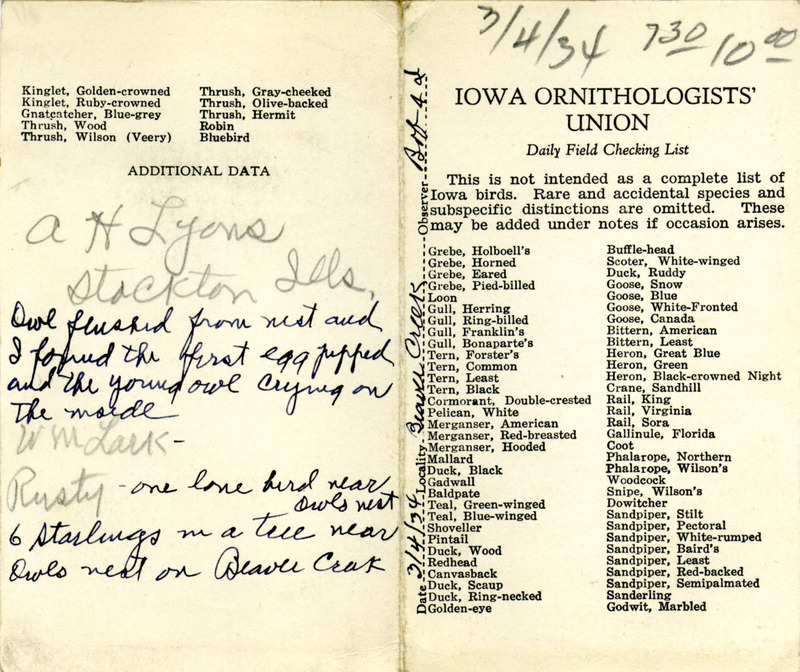 Kinglet, Golden-crowned
Kinglet, Ruby-crowned
Gnatcatcher, Blue-grey
Thrush, Wood
Thrush, Wilson (Veery)
Thrush, Gray-cheeked
Thrush, Olive-backed
Thrush, Hermit
Robin
Bluebird
ADDITIONAL DATA
A H Lyons
Stockton Ills.
Owl flushed from nest and
I found the first egg pipped
and the young owl crying on
the inside
W M Lark -
Rusty - one lone bird near
owls nest
6 Starlings in a tree near
Owls nest on Beaver Creek
3/4/34 7 30 10 00
IOWA ORNITHOLOGISTS'
UNION
Daily Field Checking List
This is not intended as a complete list of
Iowa birds. Rare and accidental species and
subspecific distinctions are omitted. These
may be added under notes if occasion arises.
Date 3/4/34 Locality Beaver Creek Observer
Grebe, Holboell's
Grebe, Horned
Grebe, Eared
Grebe, Pied-billed
Loon
Gull, Herring
Gull, Ring-billed
Gull, Franklin's
Gull, Bonaparte's
Tern, Forster's
Tern, Common
Tern, Least
Tern, Black
Cormorant, Double-crested
Pelican, White
Merganser, American
Merganser, Red-breasted
Merganser, Hooded
Mallard
Duck, Black
Gadwall
Baldpate
Teal, Green-winged
Teal, Blue-winged
Shoveller
Pintail
Duck, Wood
Redhead
Canvasback
Duck, Scaup
Duck, Ring-necked
Golden-eye
Buffle-head
Scoter, White-winged
Duck, Ruddy
Goose, Snow
Goose, Blue
Goose, White-Fronted
Goose, Canada
Bittern, American
Bittern, Least
Heron, Great Blue
Heron, Green
Heron, Black-crowned Night
Crane, Sandhill
Rail, King
Rail, Virginia
Rail, Sora
Gallinule, Florida
Coot
Phalarope, Northern
Phalarope, Wilson's
Woodcock
Snipe, Wilson's
Dowitcher
Sandpiper, Stilt
Sandpiper, Pectoral
Sandpiper, White-rumped
Sandpiper, Baird's
Sandpiper, Least
Sandpiper, Red-backed
Sandpiper, Semipalmated
Sanderling
Godwit, Marbled